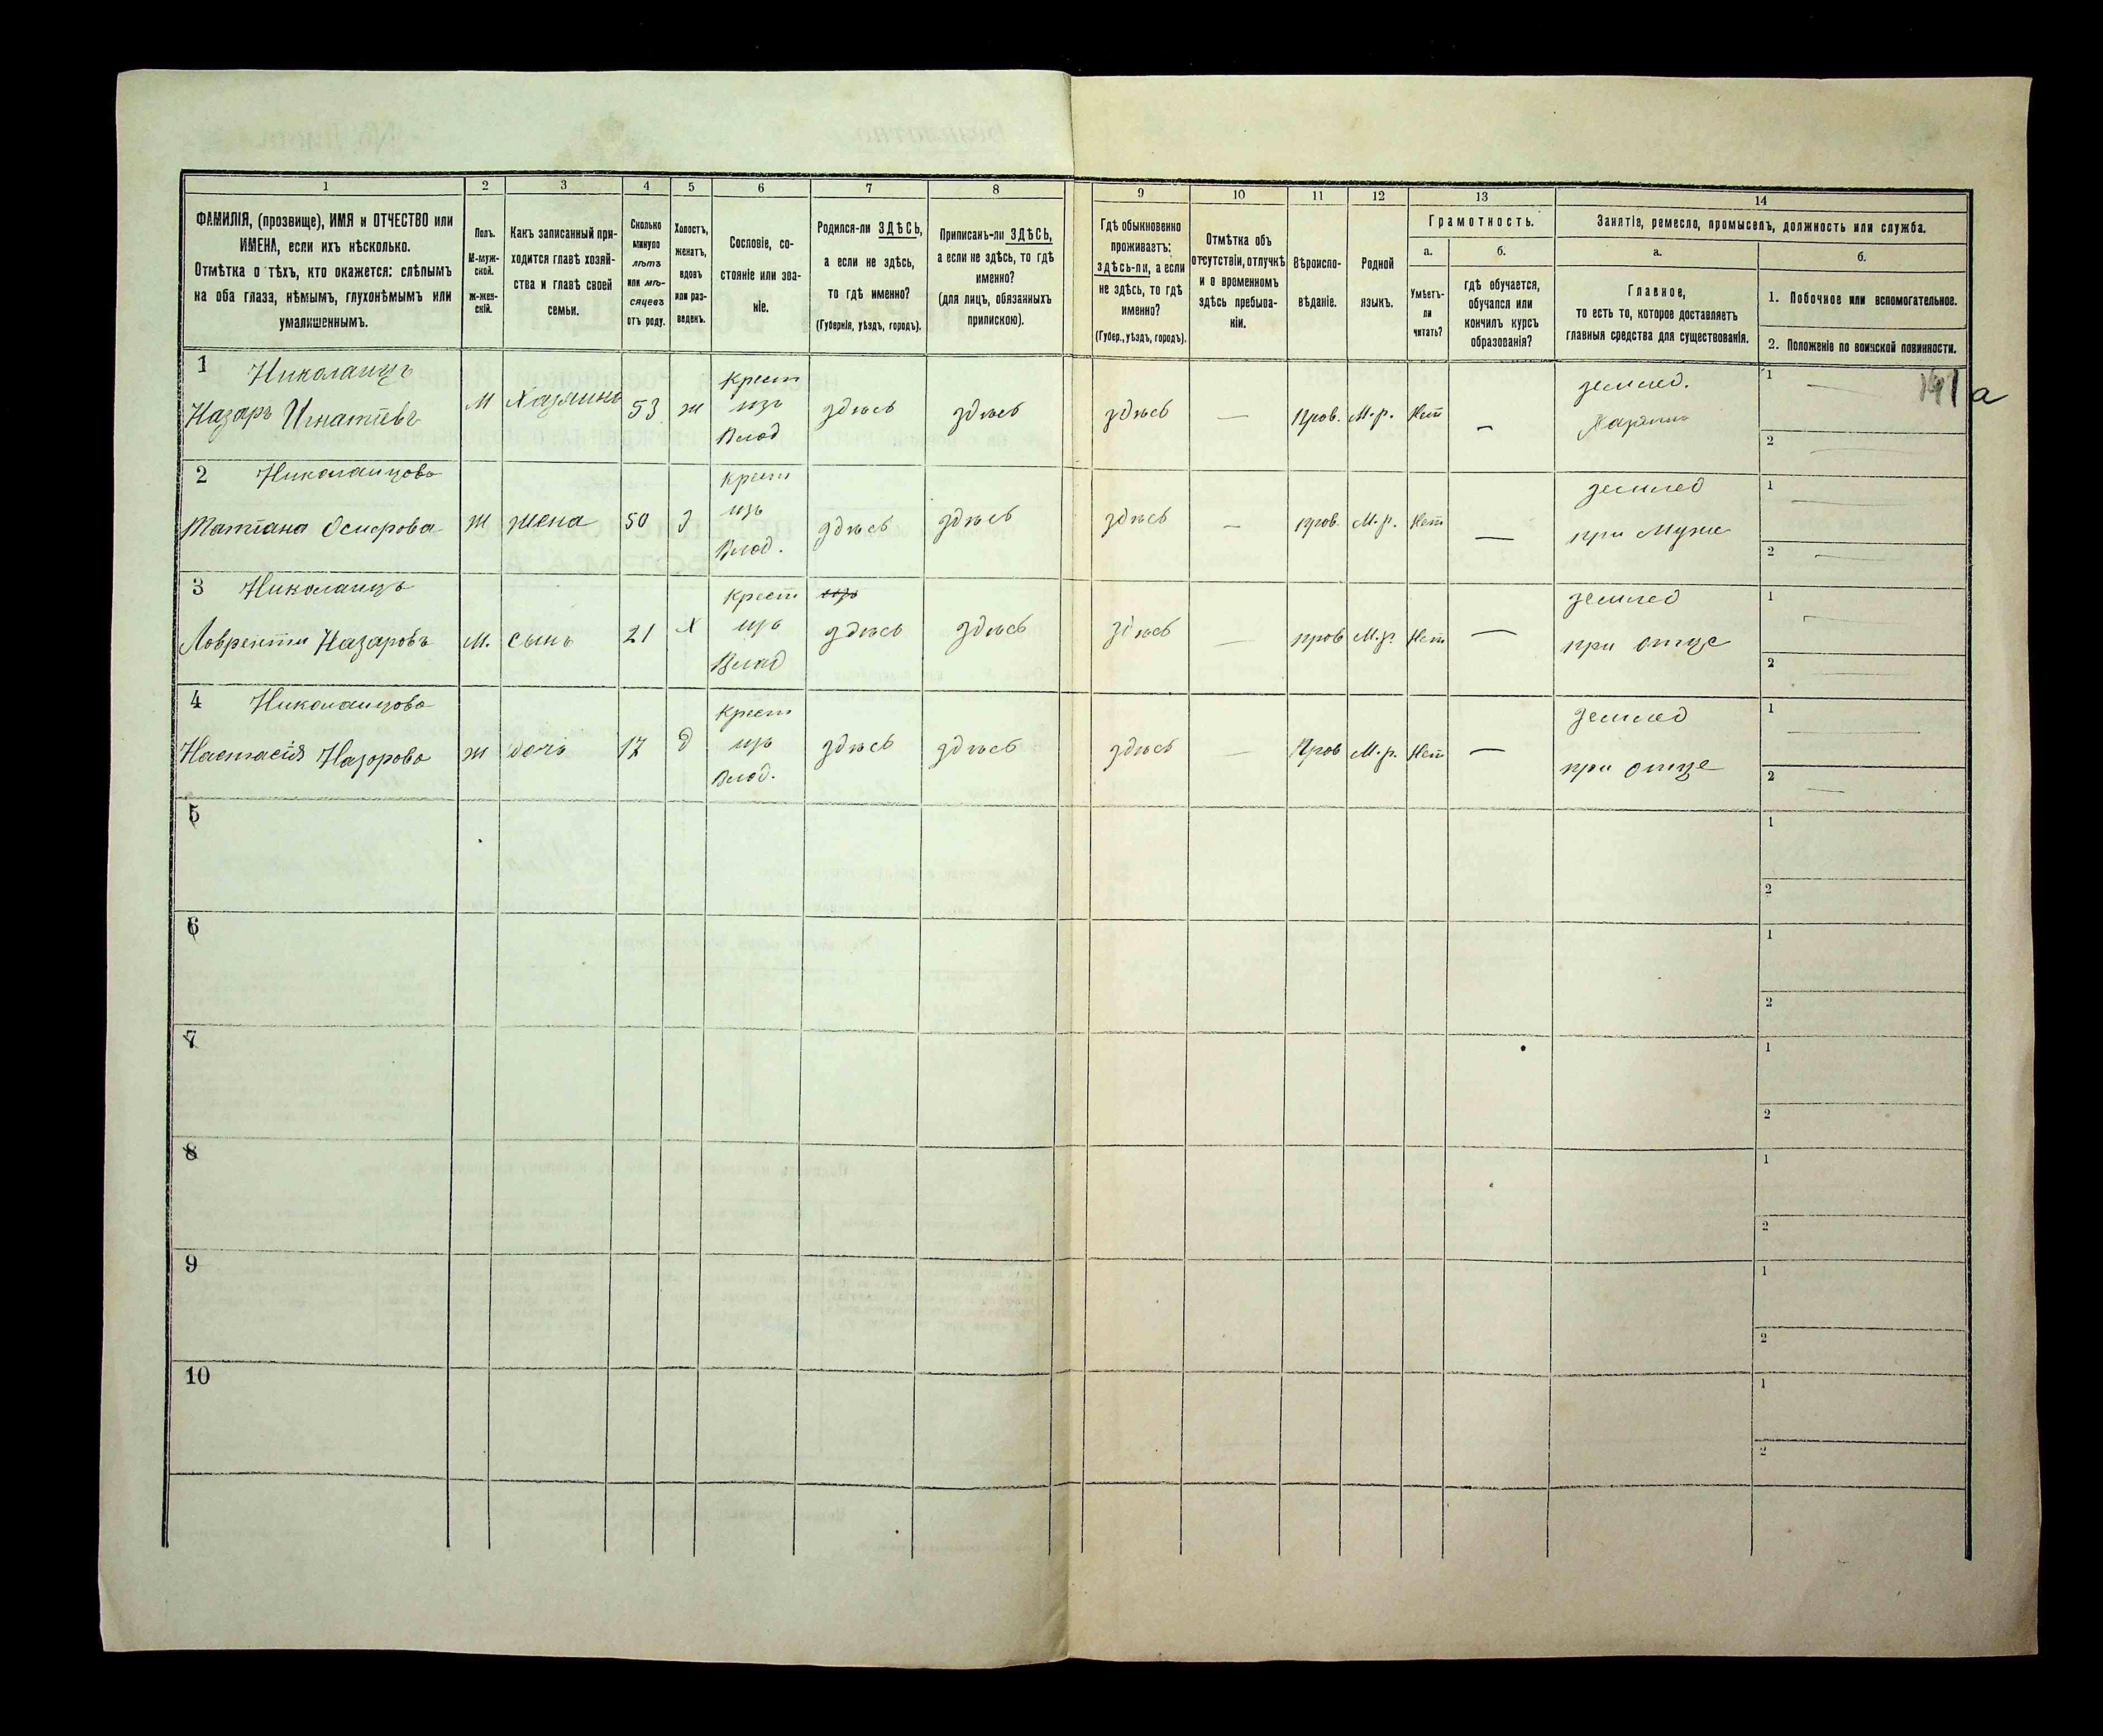 1 2 3 4 5 6 7 8 9 10 11 12 13 14
ФАМИЛІЯ, (прозвище), ИМЯ и ОТЧЕСТВО или
ИМЕНА, если ихъ нѣсколько.
Отмѣтка о тѣхъ, кто окажется: слѣпымъ
на оба глаза, нѣмымъ, глухонѣмымъ или
умалишеннымъ.
Полъ.
М-муж-
ской.
ж-жен-
скій.
Какъ записанный при-
ходится главѣ хозяй-
ства и главѣ своей
семьи.
Сколько
минуло
лѣтъ
или мѣ-
сяцевъ
отъ роду.
Холостъ,
женатъ,
вдовъ
или раз-
веденъ.
Сословіе, со-
стояніе или зва-
ніе.
Родился-ли ЗДѢСЬ,
а если не здѣсь,
то гдѣ именно?
(Губернія, уѣздъ, городъ).
Приписанъ-ли ЗДѢСЬ,
а если не здѣсь, то гдѣ
именно?
(для лицъ, обязанныхъ
припискою).
Гдѣ обыкновенно
проживаетъ:
здѣсь-ли, а если
не здѣсь, то гдѣ
именно?
(Губер., уѣздъ, городъ).
Отмѣтка объ
отсутствіи, отлучкѣ
и о временномъ
здѣсь пребыва-
ніи.
Вѣроиспо-
вѣданіе.
Родной
языкъ.
Грамотность.
а.
Умѣетъ-
ли
читать?
б.
гдѣ обучается,
обучался или
кончилъ курсъ
образованія?
Занятіе, ремесло, промыселъ, должность или служба.
а.
Главное,
то есть то, которое доставляетъ
главныя средства для существованія.
б.
1. Побочное или вспомогательное.
2. Положеніе по воинской повинности.
1 Николаицъ крест землед. 1 — а
Назаръ Игнатіевъ М Хазяинъ 53 ж изъ здѣсь здѣсь здѣсь — Прав. М.р. Нет — Хазяинъ
Влад 2 —
2 Николаицова крест землед 1 —
Татіана Осипова ж жена 50 з изъ здѣсь здѣсь здѣсь — прав. М.р. Нет — при Мужи
Влад. 2 —
3 Николаицъ крест землед 1 —
Лаврентій Назаровъ М. сынъ 21 Х изъ здѣсь здѣсь здѣсь — прав М.р. Нет — при отце
Влад 2 —
4 Николаицова крест землед 1 —
Настасія Назарова ж дочь 17 д изъ здѣсь здѣсь здѣсь — Прав М.р. Нет — при отце
Влад. 2 —
5 1
2
6 1
2
7 1
2
8 1
2
9 1
2
10 1
2